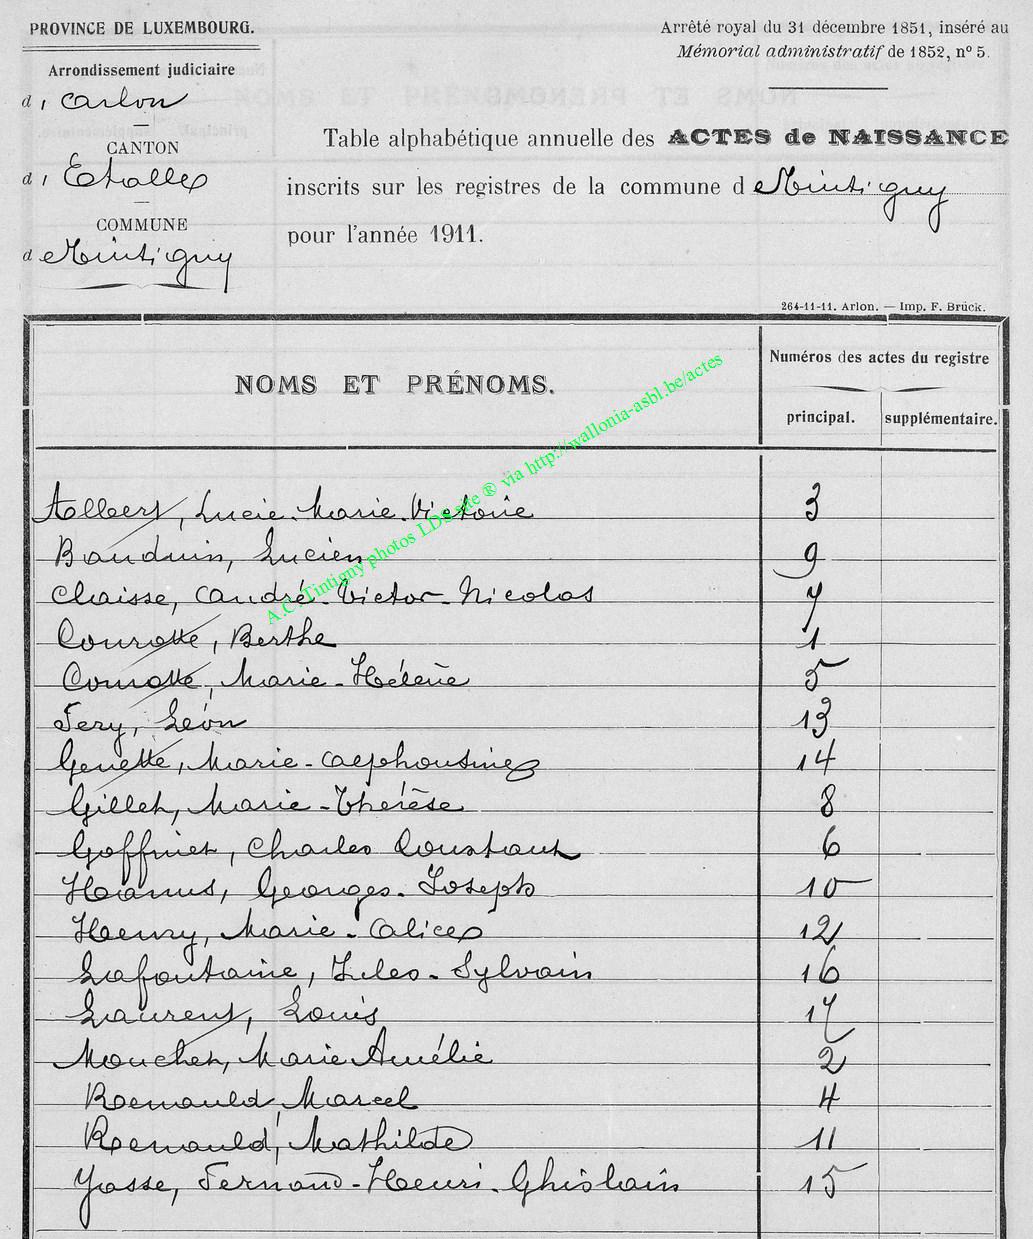 PROVINCE DE LUXEMBOURG.
Arrêté royal du 31 décembre 1851, inséré au
Mémorial administratif de 1852, nº 5.
Arrondissement judiciaire
d'Arlon
CANTON
d'Etalle
COMMUNE
de Tintigny
Table alphabétique annuelle des ACTES de NAISSANCE
inscrits sur les registres de la commune de Tintigny
pour l'année 1911.
264-11-11. Arlon. — Imp. F. Brück.
NOMS ET PRÉNOMS.
Numéros des actes du registre
principal. supplémentaire.
A.C. Tintigny photos LDS site ® via http://wallonia-asbl.be/actes
Albert, Lucie-Marie-Victorie 3
Bauduin, Lucien 9
Claisse, André-Victor-Nicolas 7
Courotte, Berthe 1
Courotte, Marie-Hélène 5
Fery, Léon 13
Genette, Marie-Alphonsine 14
Gillet, Marie-Thérèse 8
Goffinet, Charles Constant 6
Hanus, Georges-Joseph 10
Henry, Marie-Alice 12
Lafontaine, Jules-Sylvain 16
Laurent, Louis 17
Mouchet, Marie Amélie 2
Renauld, Marcel 4
Renauld, Mathilde 11
Yasse, Fernand-Henri-Ghislain 15